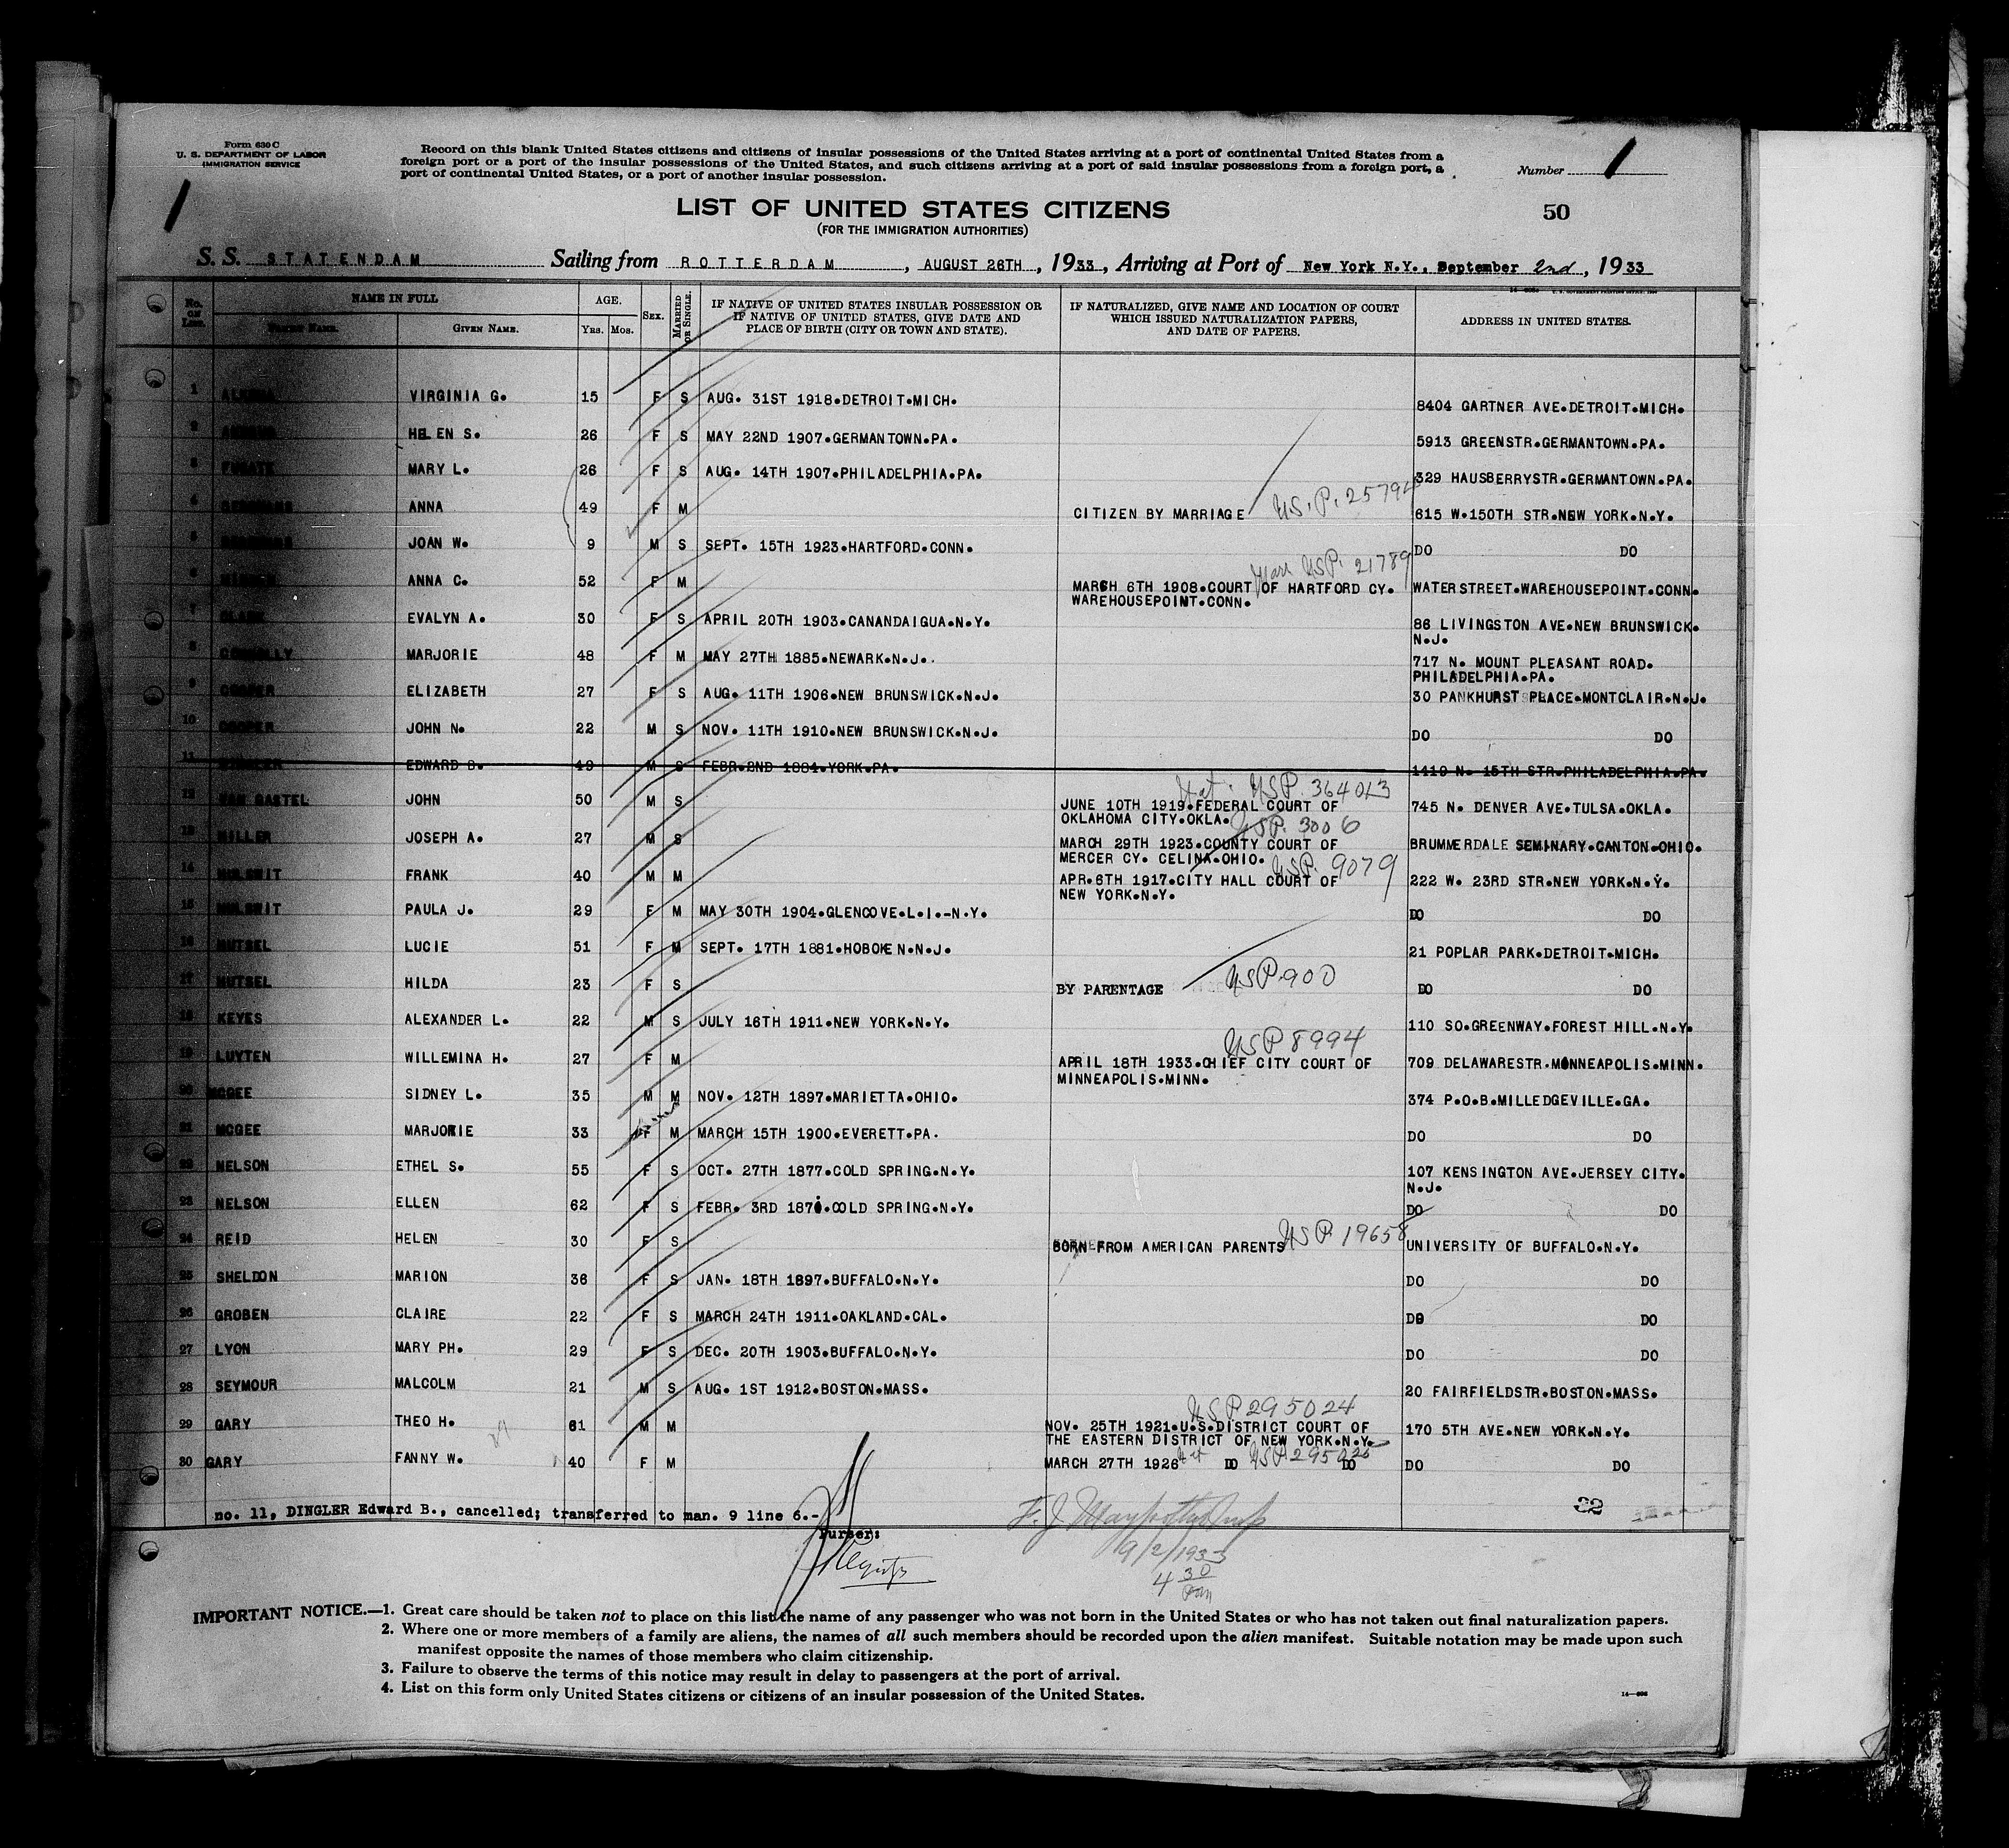 Form 630 C
U. S. DEPARTMENT OF LABOR
IMMIGRATION SERVICE
Record on this blank United States citizens and citizens of insular possessions of the United States arriving at a port of continental United States from a
foreign port or a port of the insular possessions of the United States, and such citizens arriving at a port of said insular possessions from a foreign port, a
port of continental United States, or a port of another insular possession.
Number 1
1
LIST OF UNITED STATES CITIZENS
50
(FOR THE IMMIGRATION AUTHORITIES)
S. S. STATENDAM Sailing from ROTTERDAM, AUGUST 26TH, 1933, Arriving at Port of New York N.Y., September 2nd, 1933
No. on List. NAME IN FULL AGE. Sex. Married or Single. IF NATIVE OF UNITED STATES INSULAR POSSESSION OR IF NATIVE OF UNITED STATES, GIVE DATE AND PLACE OF BIRTH (CITY OR TOWN AND STATE). IF NATURALIZED, GIVE NAME AND LOCATION OF COURT WHICH ISSUED NATURALIZATION PAPERS, AND DATE OF PAPERS. ADDRESS IN UNITED STATES.
Family Name. Given Name. Yrs. Mos.
1 VIRGINIA G. 15 F S AUG. 31ST 1918.DETROIT.MICH. 8404 GARTNER AVE.DETROIT.MICH.
2 HELEN S. 26 F S MAY 22ND 1907.GERMANTOWN.PA. 5913 GREENSTR.GERMANTOWN.PA.
3 MARY L. 26 F S AUG. 14TH 1907.PHILADELPHIA.PA. 329 HAUSBERRYSTR.GERMANTOWN.PA.
4 ANNA 49 F M CITIZEN BY MARRIAGE 615 W.150TH STR.NEW YORK.N.Y.
5 JOAN W. 9 M S SEPT. 15TH 1923.HARTFORD.CONN. DO DO
USP. 21789
6 ANNA C. 52 F M MARCH 6TH 1908.COURT OF HARTFORD CY. WATERSTREET.WAREHOUSEPOINT.CONN.
WAREHOUSEPOINT.CONN.
7 EVALYN A. 30 F S APRIL 20TH 1903.CANANDAIGUA.N.Y. 86 LIVINGSTON AVE.NEW BRUNSWICK.
N.J.
8 CONNOLLY MARJORIE 48 F M MAY 27TH 1885.NEWARK.N.J. 717 N. MOUNT PLEASANT ROAD.
PHILADELPHIA.PA.
9 COOPER ELIZABETH 27 F S AUG. 11TH 1906.NEW BRUNSWICK.N.J. 30 PANKHURST PLACE.MONTCLAIR.N.J.
10 COOPER JOHN N. 22 M S NOV. 11TH 1910.NEW BRUNSWICK.N.J. DO DO
11 DINGLER EDWARD B. 49 M S FEBR.2ND 1884.YORK.PA. 1419 N. 15TH STR.PHILADELPHIA.PA.
Nat. USP. 364013
12 VAN GASTEL JOHN 50 M S JUNE 10TH 1919.FEDERAL COURT OF 745 N. DENVER AVE.TULSA.OKLA.
OKLAHOMA CITY.OKLA. USP. 3006
13 MILLER JOSEPH A. 27 M S MARCH 29TH 1923.COUNTY COURT OF BRUMMERDALE SEMINARY.CANTON.OHIO.
MERCER CY. CELINA.OHIO. USP. 9079
14 MULSWIT FRANK 40 M M APR.6TH 1917.CITY HALL COURT OF 222 W. 23RD STR.NEW YORK.N.Y.
NEW YORK.N.Y.
15 MULSWIT PAULA J. 29 F M MAY 30TH 1904.GLENCOVE.L.I.-N.Y. DO DO
16 MUTSEL LUCIE 51 F M SEPT. 17TH 1881.HOBOKEN.N.J. 21 POPLAR PARK.DETROIT.MICH.
17 MUTSEL HILDA 23 F S BY PARENTAGE USP.900 DO DO
18 KEYES ALEXANDER L. 22 M S JULY 16TH 1911.NEW YORK.N.Y. 110 SO.GREENWAY.FOREST HILL.N.Y.
USP 8994
19 LUYTEN WILLEMINA H. 27 F M APRIL 18TH 1933.CHIEF CITY COURT OF 709 DELAWARESTR.MINNEAPOLIS.MINN.
MINNEAPOLIS.MINN.
20 MCGEE SIDNEY L. 35 M M NOV. 12TH 1897.MARIETTA.OHIO. 374 P.O.B.MILLEDGEVILLE.GA.
21 MCGEE MARJORIE 33 F M MARCH 15TH 1900.EVERETT.PA. DO DO
22 NELSON ETHEL S. 55 F S OCT. 27TH 1877.COLD SPRING.N.Y. 107 KENSINGTON AVE.JERSEY CITY.
N.J.
23 NELSON ELLEN 62 F S FEBR. 3RD 1871.COLD SPRING.N.Y. DO DO
24 REID HELEN 30 F S BORN FROM AMERICAN PARENTS USP 19658 UNIVERSITY OF BUFFALO.N.Y.
25 SHELDON MARION 36 F S JAN. 18TH 1897.BUFFALO.N.Y. DO DO
26 GROBEN CLAIRE 22 F S MARCH 24TH 1911.OAKLAND.CAL. DO DO
27 LYON MARY PH. 29 F S DEC. 20TH 1903.BUFFALO.N.Y. DO DO
28 SEYMOUR MALCOLM 21 M S AUG. 1ST 1912.BOSTON.MASS. 20 FAIRFIELDSTR.BOSTON.MASS.
USP 295024
29 GARY THEO H. 61 M M NOV. 25TH 1921.U.S.DISTRICT COURT OF 170 5TH AVE.NEW YORK.N.Y.
THE EASTERN DISTRICT OF NEW YORK.N.Y.
30 GARY FANNY W. 40 F M MARCH 27TH 1926 Nat DO USP 295025 DO DO DO
no. 11, DINGLER Edward B., cancelled; transferred to man. 9 line 6.-
Purser:
9/2/1933
4 30 pm
IMPORTANT NOTICE.—1. Great care should be taken not to place on this list the name of any passenger who was not born in the United States or who has not taken out final naturalization papers.
2. Where one or more members of a family are aliens, the names of all such members should be recorded upon the alien manifest. Suitable notation may be made upon such
manifest opposite the names of those members who claim citizenship.
3. Failure to observe the terms of this notice may result in delay to passengers at the port of arrival.
4. List on this form only United States citizens or citizens of an insular possession of the United States.